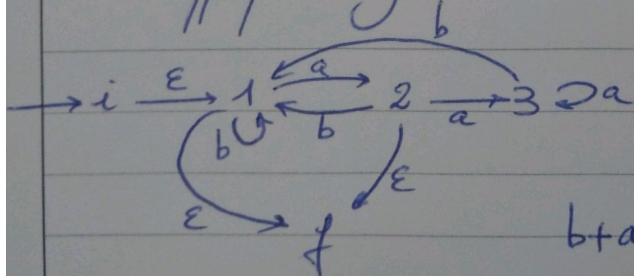 b
→ i →ε 1 →a 2 →a 3 a
b b
ε ε
f
b+a